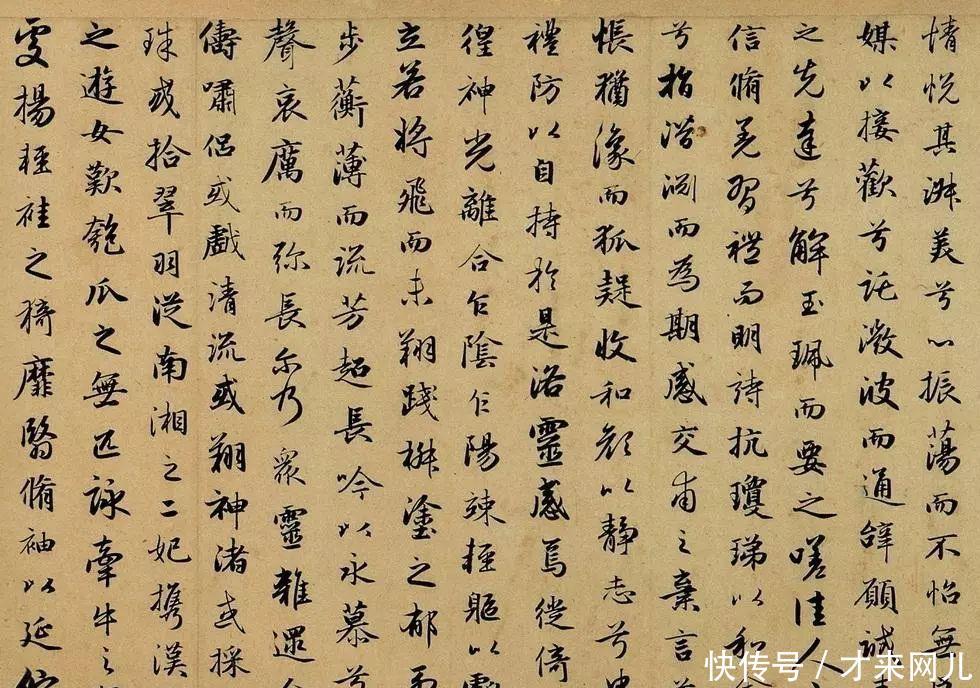 情悅其淑美兮心振蕩而不怡無
媒以接歡兮託微波而通辭願誠
之先達兮解玉珮而要之嗟佳人
信脩羌習禮而明詩抗瓊珶以和
兮指潛淵而為期感交甫之棄言
悵猶豫而狐疑收和顏以靜志兮
禮防以自持於是洛靈感焉徙倚
徨神光離合乍陰乍陽竦輕軀以
立若將飛而未翔踐椒塗之郁
步蘅薄而流芳超長吟以永慕兮
聲哀厲而弥長尓乃眾靈雜遝
儔嘯侶或戲清流或翔神渚或採
珠或拾翠羽從南湘之二妃攜漢
之遊女歎匏瓜之無匹詠牽牛之
處揚輕袿之猗靡翳脩袖以延
快传号/才来网儿